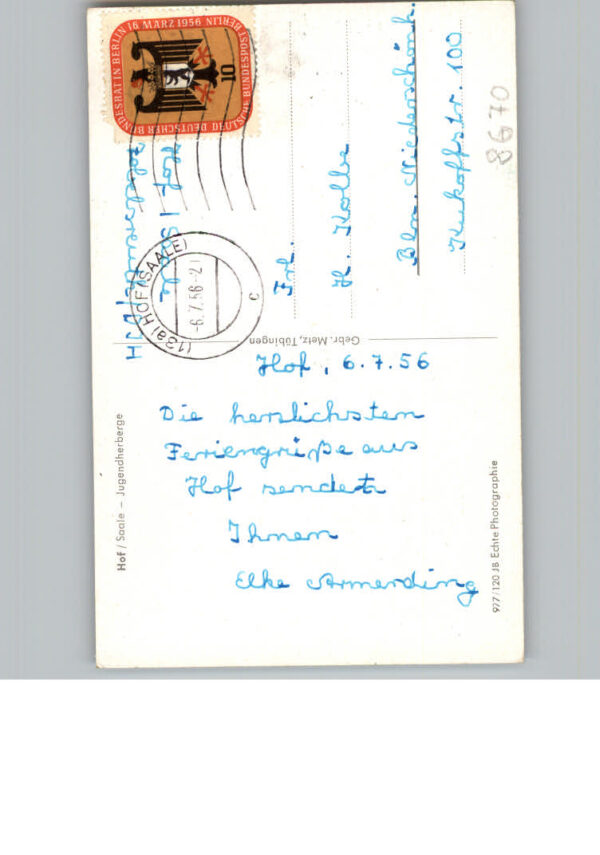 Hof, 6.7.56
Die herzlichsten
Feriengrüße aus
Hof sendet
Ihnen
Elke Armerding
Frl.
H. Kolbe
Bln. Niederschönh.
Kuckhoffstr. 100
8670
Hof / Saale
DJH
DEUTSCHER BUNDESRAT IN BERLIN 16. MÄRZ 1956
DEUTSCHE BUNDESPOST BERLIN
10
(13a) HOF (SAALE)
-6.7.56-21
c
Gebr. Metz, Tübingen
Hof / Saale – Jugendherberge
977/120 JB Echte Photographie